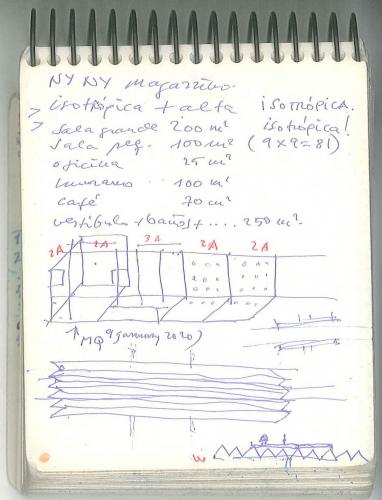 NY NY magazzino.
> isotrópica + alta isotrópica.
> Sala grande 200 m² isotrópica!
Sala peq. 100 m² (9x9=81)
oficina 25 m²
100 m²
café 70 m²
vestíbulo + baños + .... 250 m²
2A 2A 3A 2A 2A
MQ 9 january 2020)